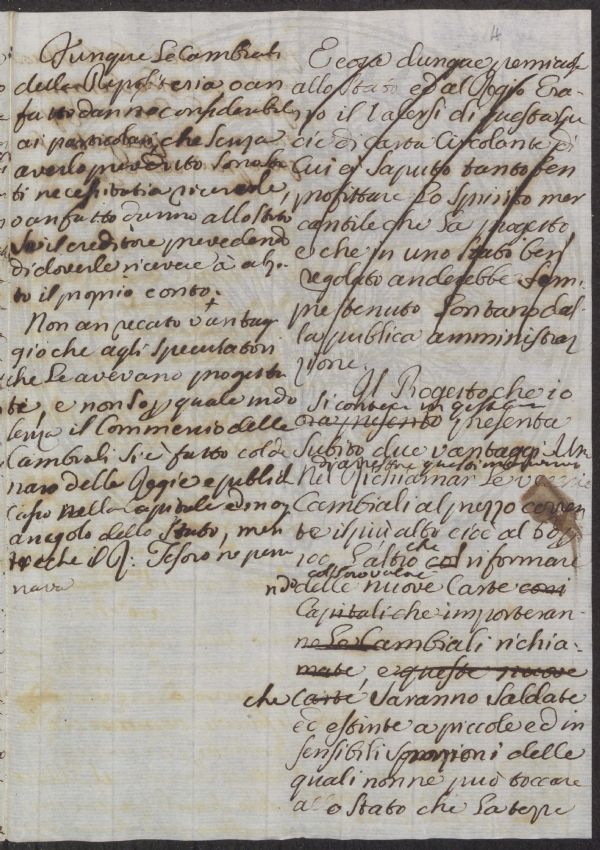 4
Dunque le Cambiali
della
fatto danno considerabile
ai particolari, che senza
averlo preveduto sono sta
ti necessitati a riceverle,
o an fatto danno allo Stato
se il creditore prevedendo
di doverle ricevere à alz.
to il proprio conto.
Non an recato vantag
gio che agli speculatori
che le avevano progetta
te, e non so per quale indo
lenza il Commercio delle
Cambiali si è fatto col de
naro delle Reggie e publiche
Casse nella Capitale ed in ogni
angolo dello Stato, men
tre che il R: Tesoro ne penu
riava
E cosa dunque
allo Stato ed al Regio Era
rio il
cie di Carta Circolante di
Cui à Saputo tanto ben
profittare Lo Spirito mer
cantile che La progettò
e che in uno Stato ben
regolato anderebbe Sem
pre tenuto Lontano dal
la publica amministra
zione.
Il Progetto che io
presenta
Subito due vantaggi. Un
Nel Richiamar Le vecchie
Cambiali al prezzo corren
te il più alto cioè al
L'altro che riformare
delle nuove Carte
Capitali che importeran
no Le Cambiali richia
mate, e queste nuove
che Carte Saranno Saldate
ed estinte a piccole ed in
sensibili porzioni delle
quali non ne può toccare
allo Stato che La